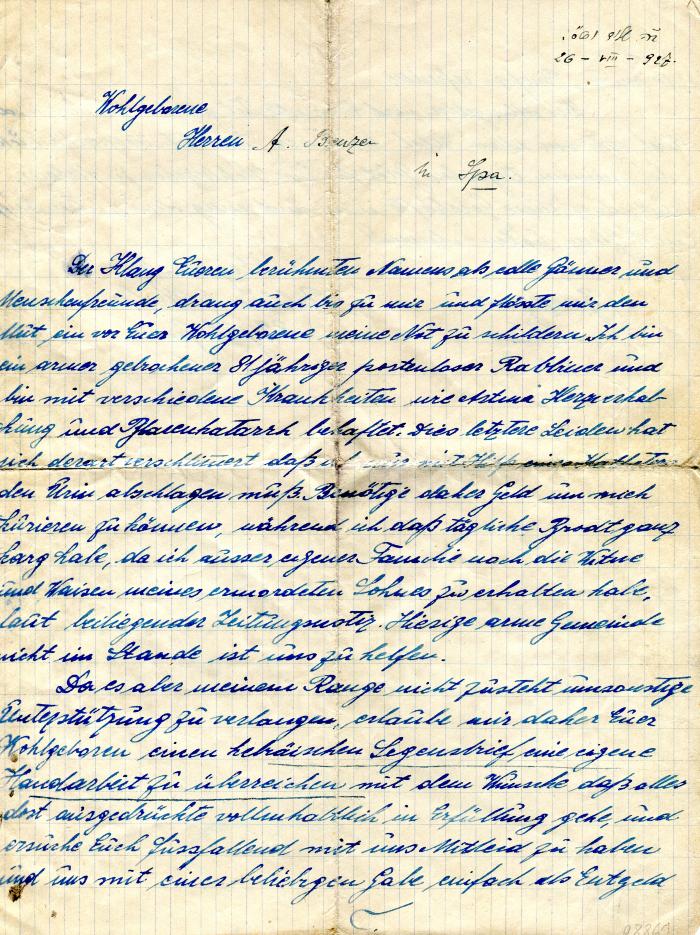 26 - VIII - 926.
Wohlgeborene
Herren A. Benzer
in Spa.
Der Klang Eueren berühmten Namens als edle Gönner und
Menschenfreunde, drang auch bis zu mir und flösste mir den
Mut ein vor Euer Wohlgeborene meine Not zu schildern. Ich bin
ein armer gebrochener 81 jähriger postenloser Rabbiner und
bin mit verschiedene Krankheiten wie Astma Herzverhab-
kung und Blasenkatarrh behaftet. Dies letztere Leiden hat
sich derart verschlimert daß ich nur mit Hilf eines Katheters
den Urin abschlagen muß. Benötige daher Geld um mich
kurieren zu können, während ich daß tägliche Brodt ganz
karg habe, da ich ausser eigener Familie noch die Witwe
und Waisen meines ermordeten Sohnes zu erhalten habe,
laut beiliegender Zeitungsnotiz. Hiesige arme Gemeinde
nicht im Stande ist uns zu helfen.
Da es aber meinem Range nicht zusteht umsonstige
Unterstützung zu verlangen, erlaube mir daher Euer
Wohlgeboren einen hebräischen Segensbrief, eine eigene
Handarbeit zu überreichen mit dem Wunsche daß alles
dort ausgedrückte vollinhaltlich in Erfüllung gehe, und
ersuche Euch fussfallend mit uns Mitleid zu haben
und uns mit einer beliebigen Gabe einfach als Entgeld